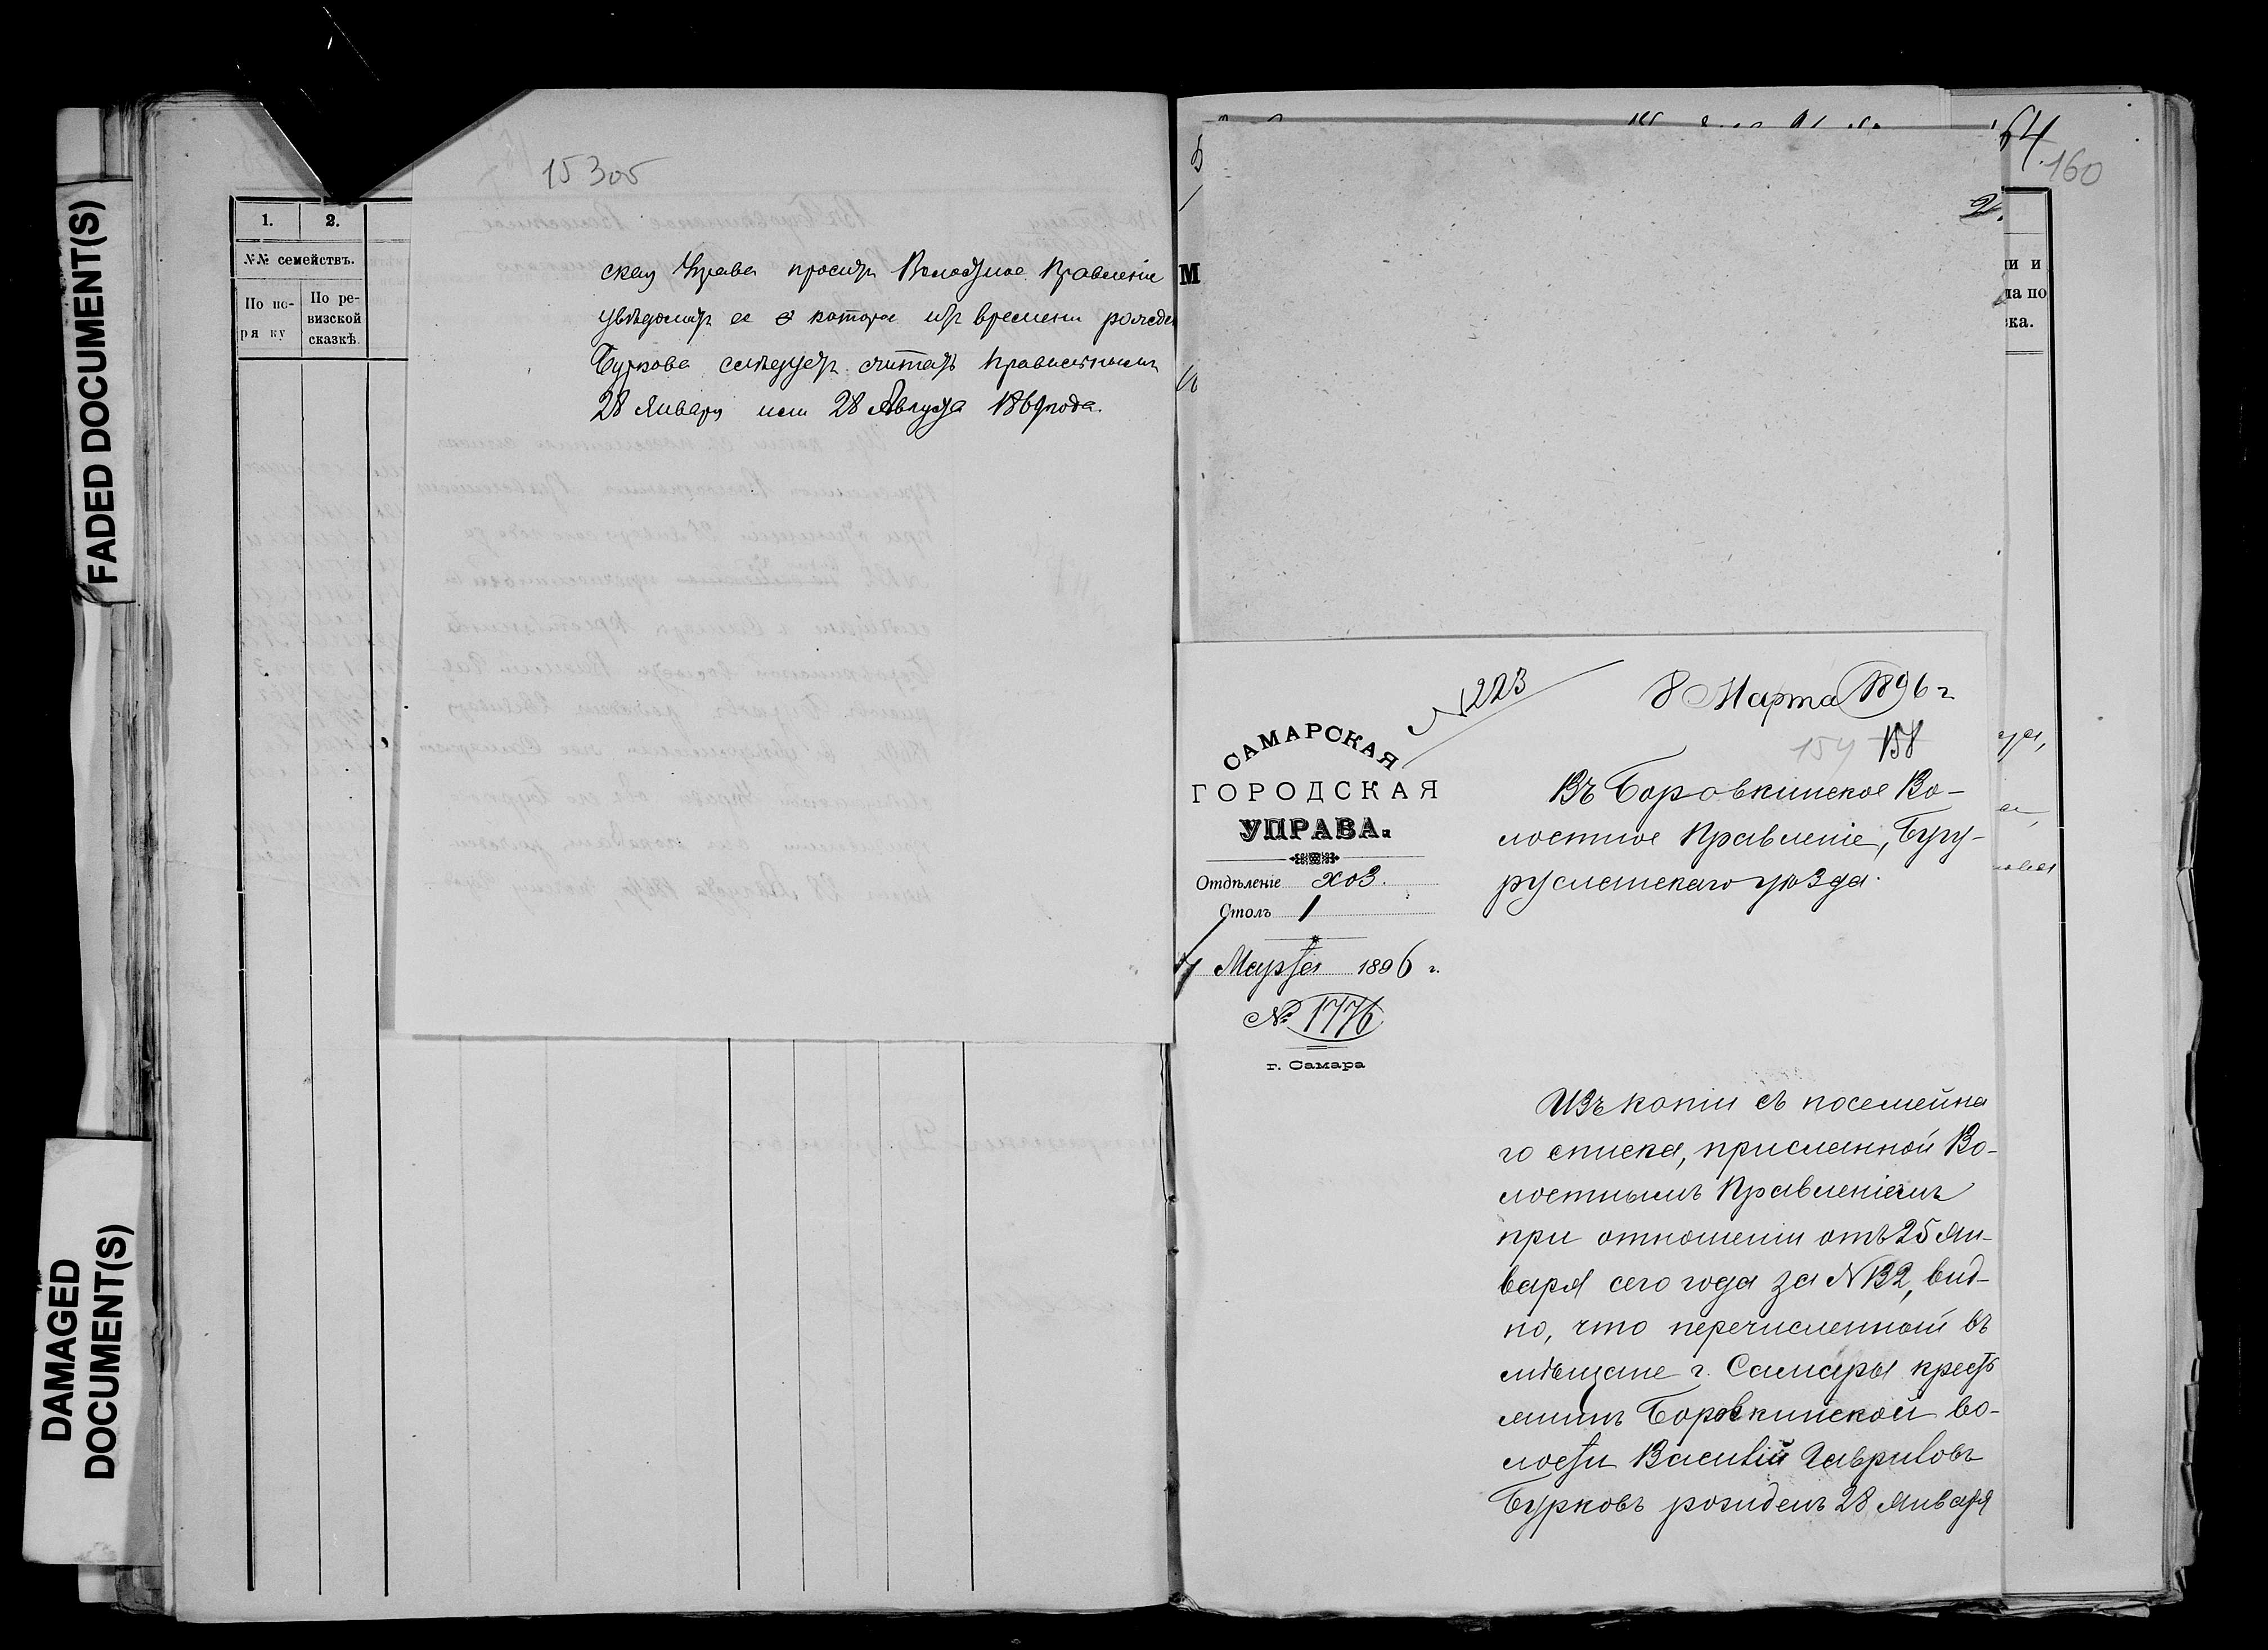 FADED DOCUMENT(S)
DAMAGED
DOCUMENT(S)
15305
1.
2.
№№ семействъ.
По по-
ря ку
По ре-
визской
сказкѣ.
ская Управа проситъ Волостное Правленіе
увѣдомить ее которое изъ времени рожде
Буркова слѣдуетъ считать правильнымъ
28 Января или 28 Августа 1869 года.
М
64
160
2.
и и
ла по
ка.
САМАРСКАЯ
ГОРОДСКАЯ
УПРАВА.
Отдѣленіе хоз.
Столъ 1
7 Марта 1896 г.
№ 1776
г. Самара
N 223
8 Марта 1896 г
159 158
Въ Боровкинское Во-
лостное Правленіе, Бугу-
русланскаго уѣзда.
Изъ копіи съ посемейна
го списка, присланной Во-
лостнымъ Правленіемъ
при отношеніи отъ 25 Ян-
варя сего года за N 132, вид-
но, что перечисленный въ
мѣщане г. Самары кресть
янинъ Боровкинской во-
лости Василій Гавриловъ
Бурковъ рожденъ 28 Января